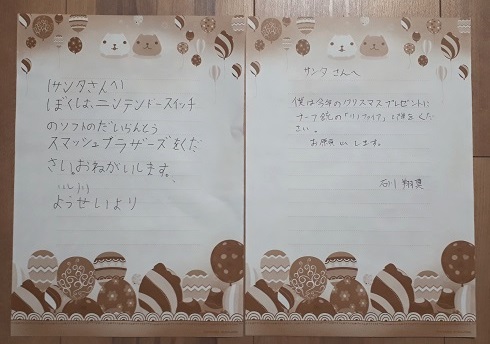 (サンタさんへ)
ぼくは、ニンテンドースイッチ
のソフトのだいらんとう
スマッシュブラザーズをくだ
さい。おねがいします。
ようせいより
サンタさんへ
僕は今年のクリスマスプレゼントに
を くだ
さい。
お願いします。
石川